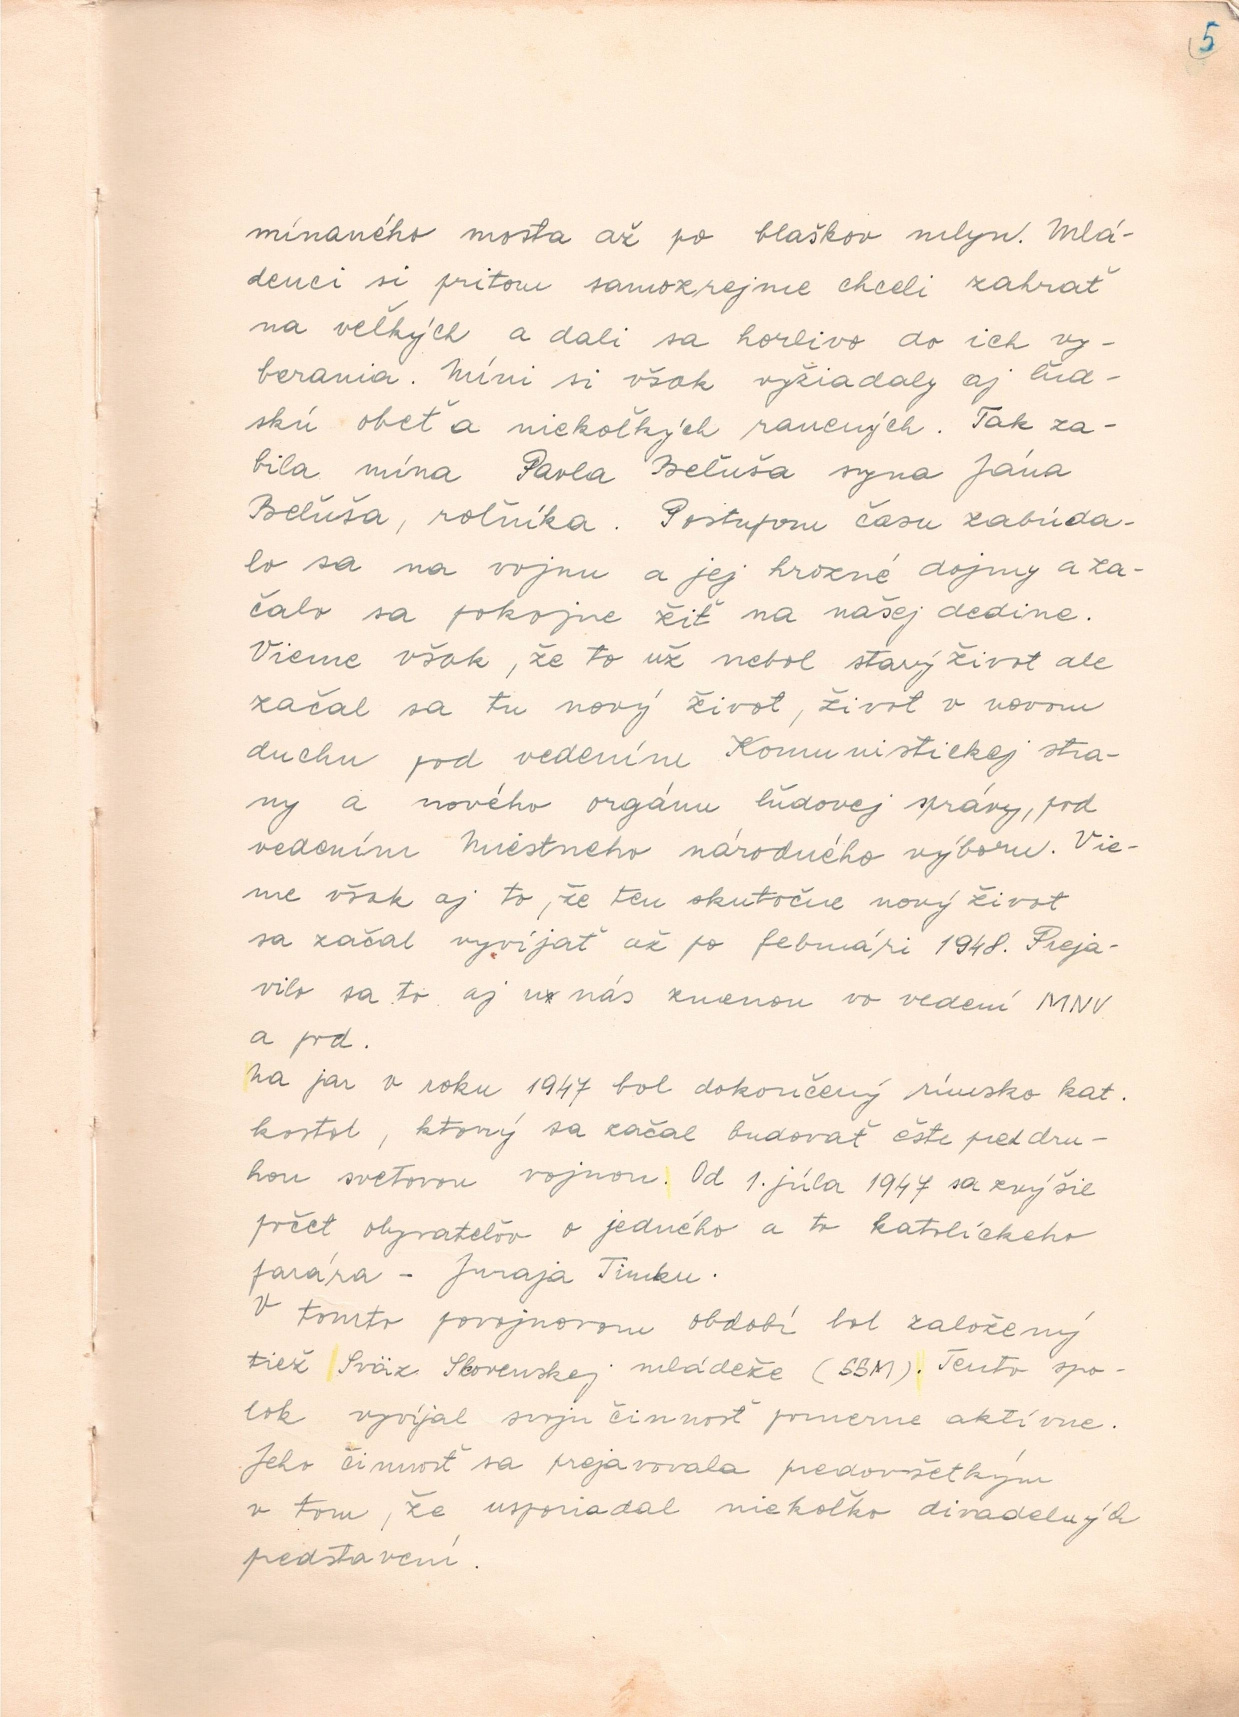 5
mínaného mosta až po blaškov mlyn. Mlá-
denci si pritom samozrejme chceli zahrať
na veľkých a dali sa horlivo do ich vy-
berania. Míni si však vyžiadaly aj ľud-
skú obeť a niekoľkých ranených. Tak za-
bila mína Pavla Beľuša syna Jána
Beľuša, roľníka. Postupom času zabúda-
lo sa na vojnu a jej hrozné dojmy a za-
čalo sa pokojne žiť na našej dedine.
Vieme však, že to už nebol starý život ale
začal sa tu nový život, život v novom
duchu pod vedením Komunistickej stra-
ny a nového orgánu ľudovej správy, pod
vedením Miestneho národného výboru. Vie-
me však aj to, že ten skutočne nový život
sa začal vyvíjať až po februári 1948. Preja-
vilo sa to aj u nás zmenou vo vedení MNV
a pod.
Na jar v roku 1947 bol dokončený rímsko kat.
kostol, ktorý sa začal budovať ešte pred dru-
hou svetovou vojnou. Od 1. júla 1947 sa zvýšil
počet obyvateľov o jedného a to katolíckeho
farára - Juraja Timku.
V tomto povojnovom období bol založený
tiež Sväz Slovenskej mládeže (SSM). Tento spo-
lok vyvíjal svoju činnosť pomerne aktívne.
Jeho činnosť sa prejavovala predovšetkým
v tom, že usporiadal niekoľko divadelných
predstavení.